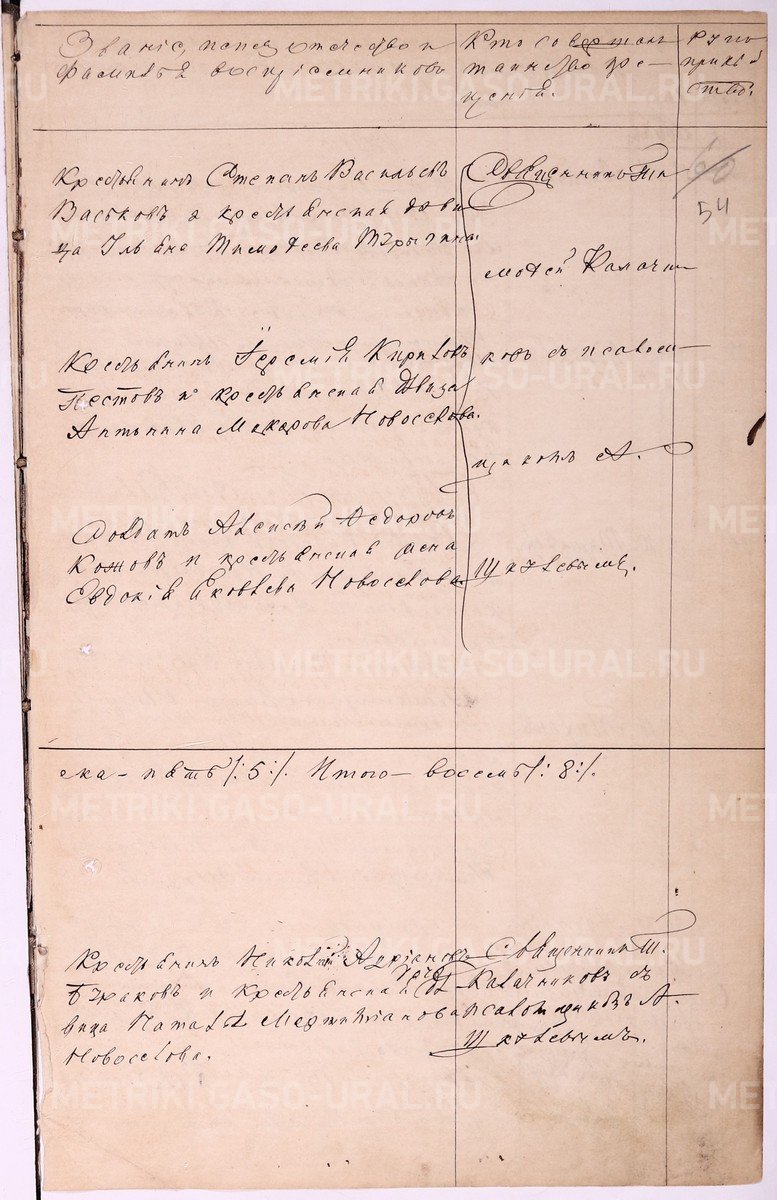 Званіе, имя, отчество и
фамилія воспріемниковъ
Кто совершал
таинство кре-
щенія.
Руко
прикла
ство.
60
54
Крестьянинъ Степанъ Васильевъ
Васьковъ и крестьянская дѣви
ца Ульяна Тимоѳеева
Священникъ Ти
моѳей Калачни
ковъ съ псаломщ
щикомъ А.
Щ
Крестьянинъ Іеремія Кириловъ
Пестовъ и крестьянская дѣвица
Антонина Макарова Новоселова.
Солдатъ Алексѣй Ѳедоровъ
и крестьянская жена
Евдокія Яковлева Новоселова.
ска - пять /: 5 :/. Итого - восемь /: 8 :/.
Крестьянинъ Николай Адріановъ
и крестьянская дѣ
вица Наталья Новоселова.
Священникъ Т.
Калачниковъ съ
псаломщикомъ А.
METRIKI.GASO-URAL.RU